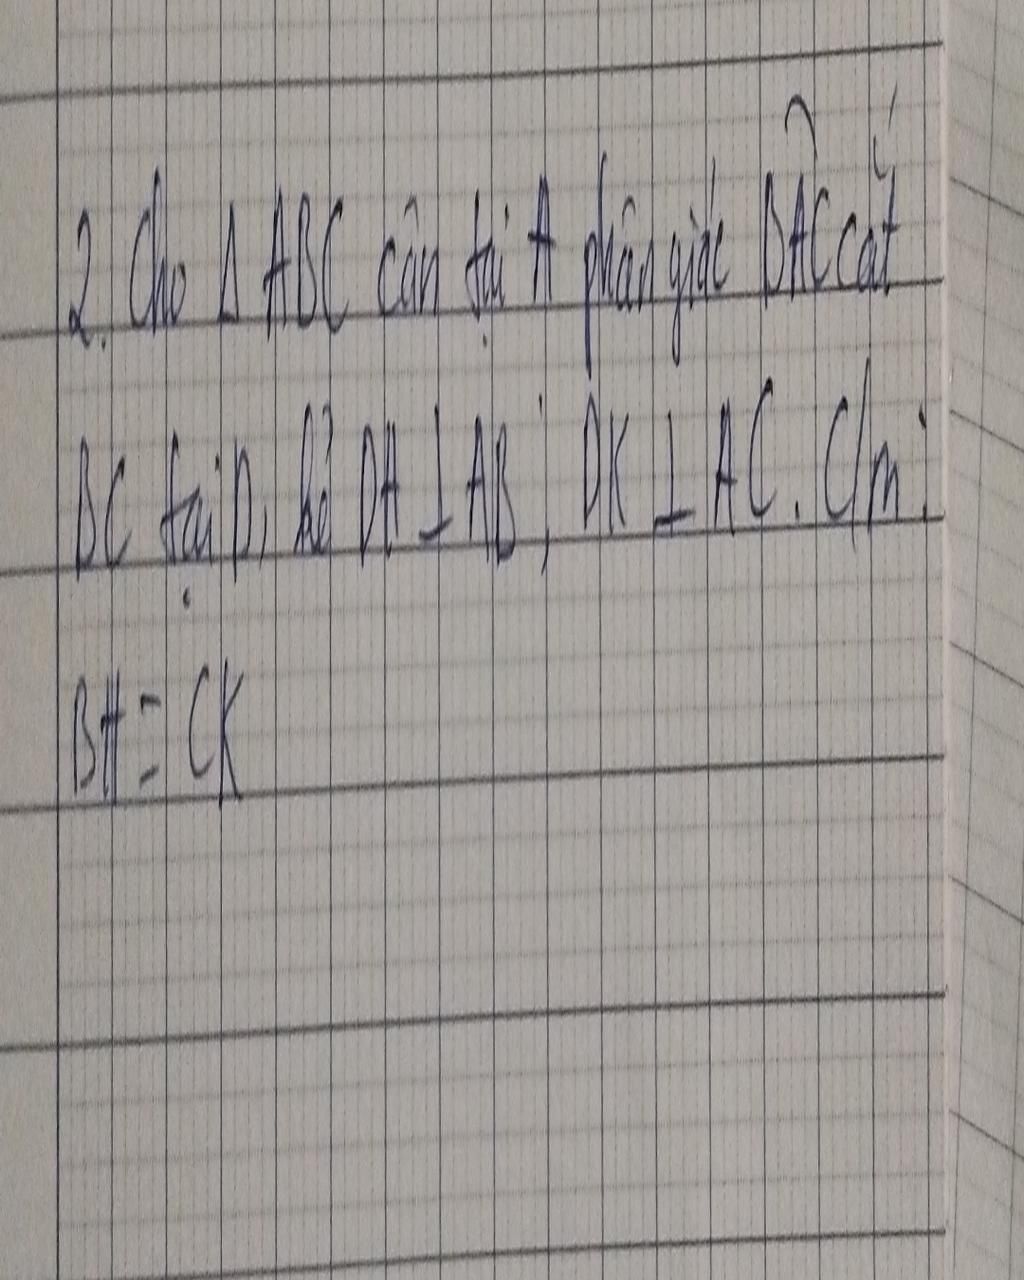 2. Cho Δ ABC cân tại A phân giác BÂC cắt
BC tại D, kẻ DH ⊥ AB ; DK ⊥ AC. C/m :
BH = CK